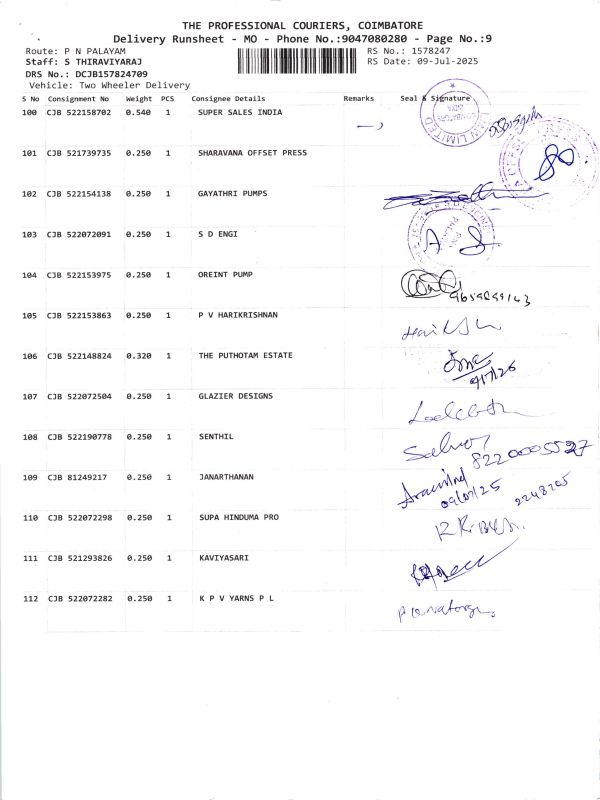 THE PROFESSIONAL COURIERS, COIMBATORE
Delivery Runsheet - MO - Phone No.:9047080280 - Page No.:9
Route: P N PALAYAM
RS No.: 1578247
Staff: S THIRAVIYARAJ
RS Date: 09-Jul-2025
DRS No.: DCJB157824709
Vehicle: Two Wheeler Delivery
S No Consignment No Weight PCS Consignee Details Remarks Seal & Signature
100 CJB 522158702 0.540 1 SUPER SALES INDIA
101 CJB 521739735 0.250 1 SHARAVANA OFFSET PRESS
102 CJB 522154138 0.250 1 GAYATHRI PUMPS
103 CJB 522072091 0.250 1 S D ENGI
104 CJB 522153975 0.250 1 OREINT PUMP
105 CJB 522153863 0.250 1 P V HARIKRISHNAN
106 CJB 522148824 0.320 1 THE PUTHOTAM ESTATE
107 CJB 522072504 0.250 1 GLAZIER DESIGNS
108 CJB 522190778 0.250 1 SENTHIL
8220005527
109 CJB 81249217 0.250 1 JANARTHANAN
Aravind
09/07/25
110 CJB 522072298 0.250 1 SUPA HINDUMA PRO
111 CJB 521293826 0.250 1 KAVIYASARI
112 CJB 522072282 0.250 1 K P V YARNS P L